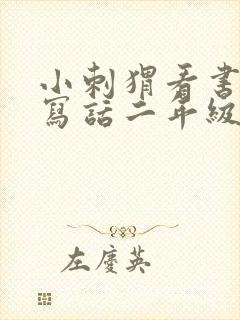 小刺猬看书
寫話二年級
左慶英